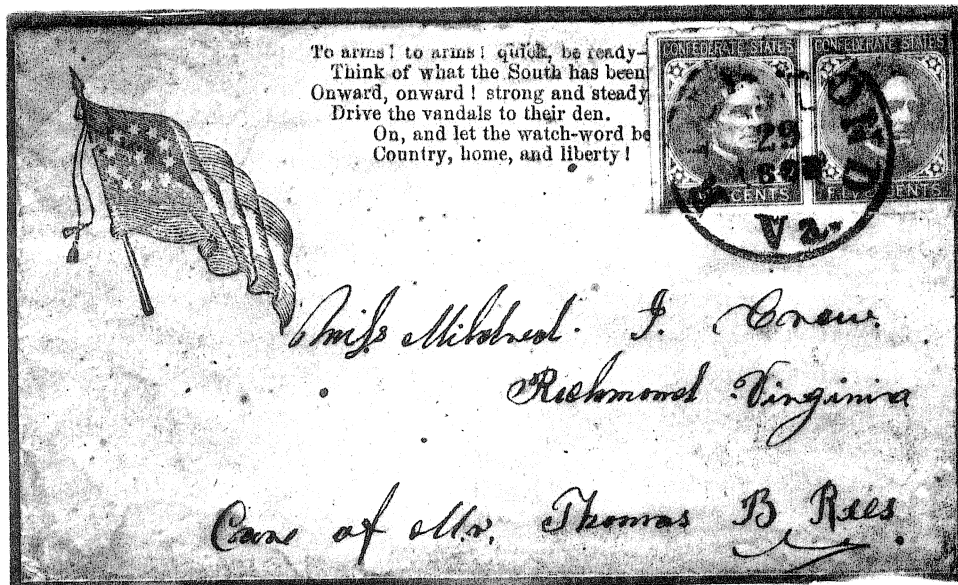 To arms! to arms! quick, be ready—
Think of what the South has been
Onward, onward! strong and steady
Drive the vandals to their den.
On, and let the watch-word be
Country, home, and liberty!
CONFEDERATE STATES CONFEDERATE STATES
CENTS CENTS
29
Va.
Miss Mildred. J. Crew.
Richmond Virginia
Care of Mr. Thomas B Rees.